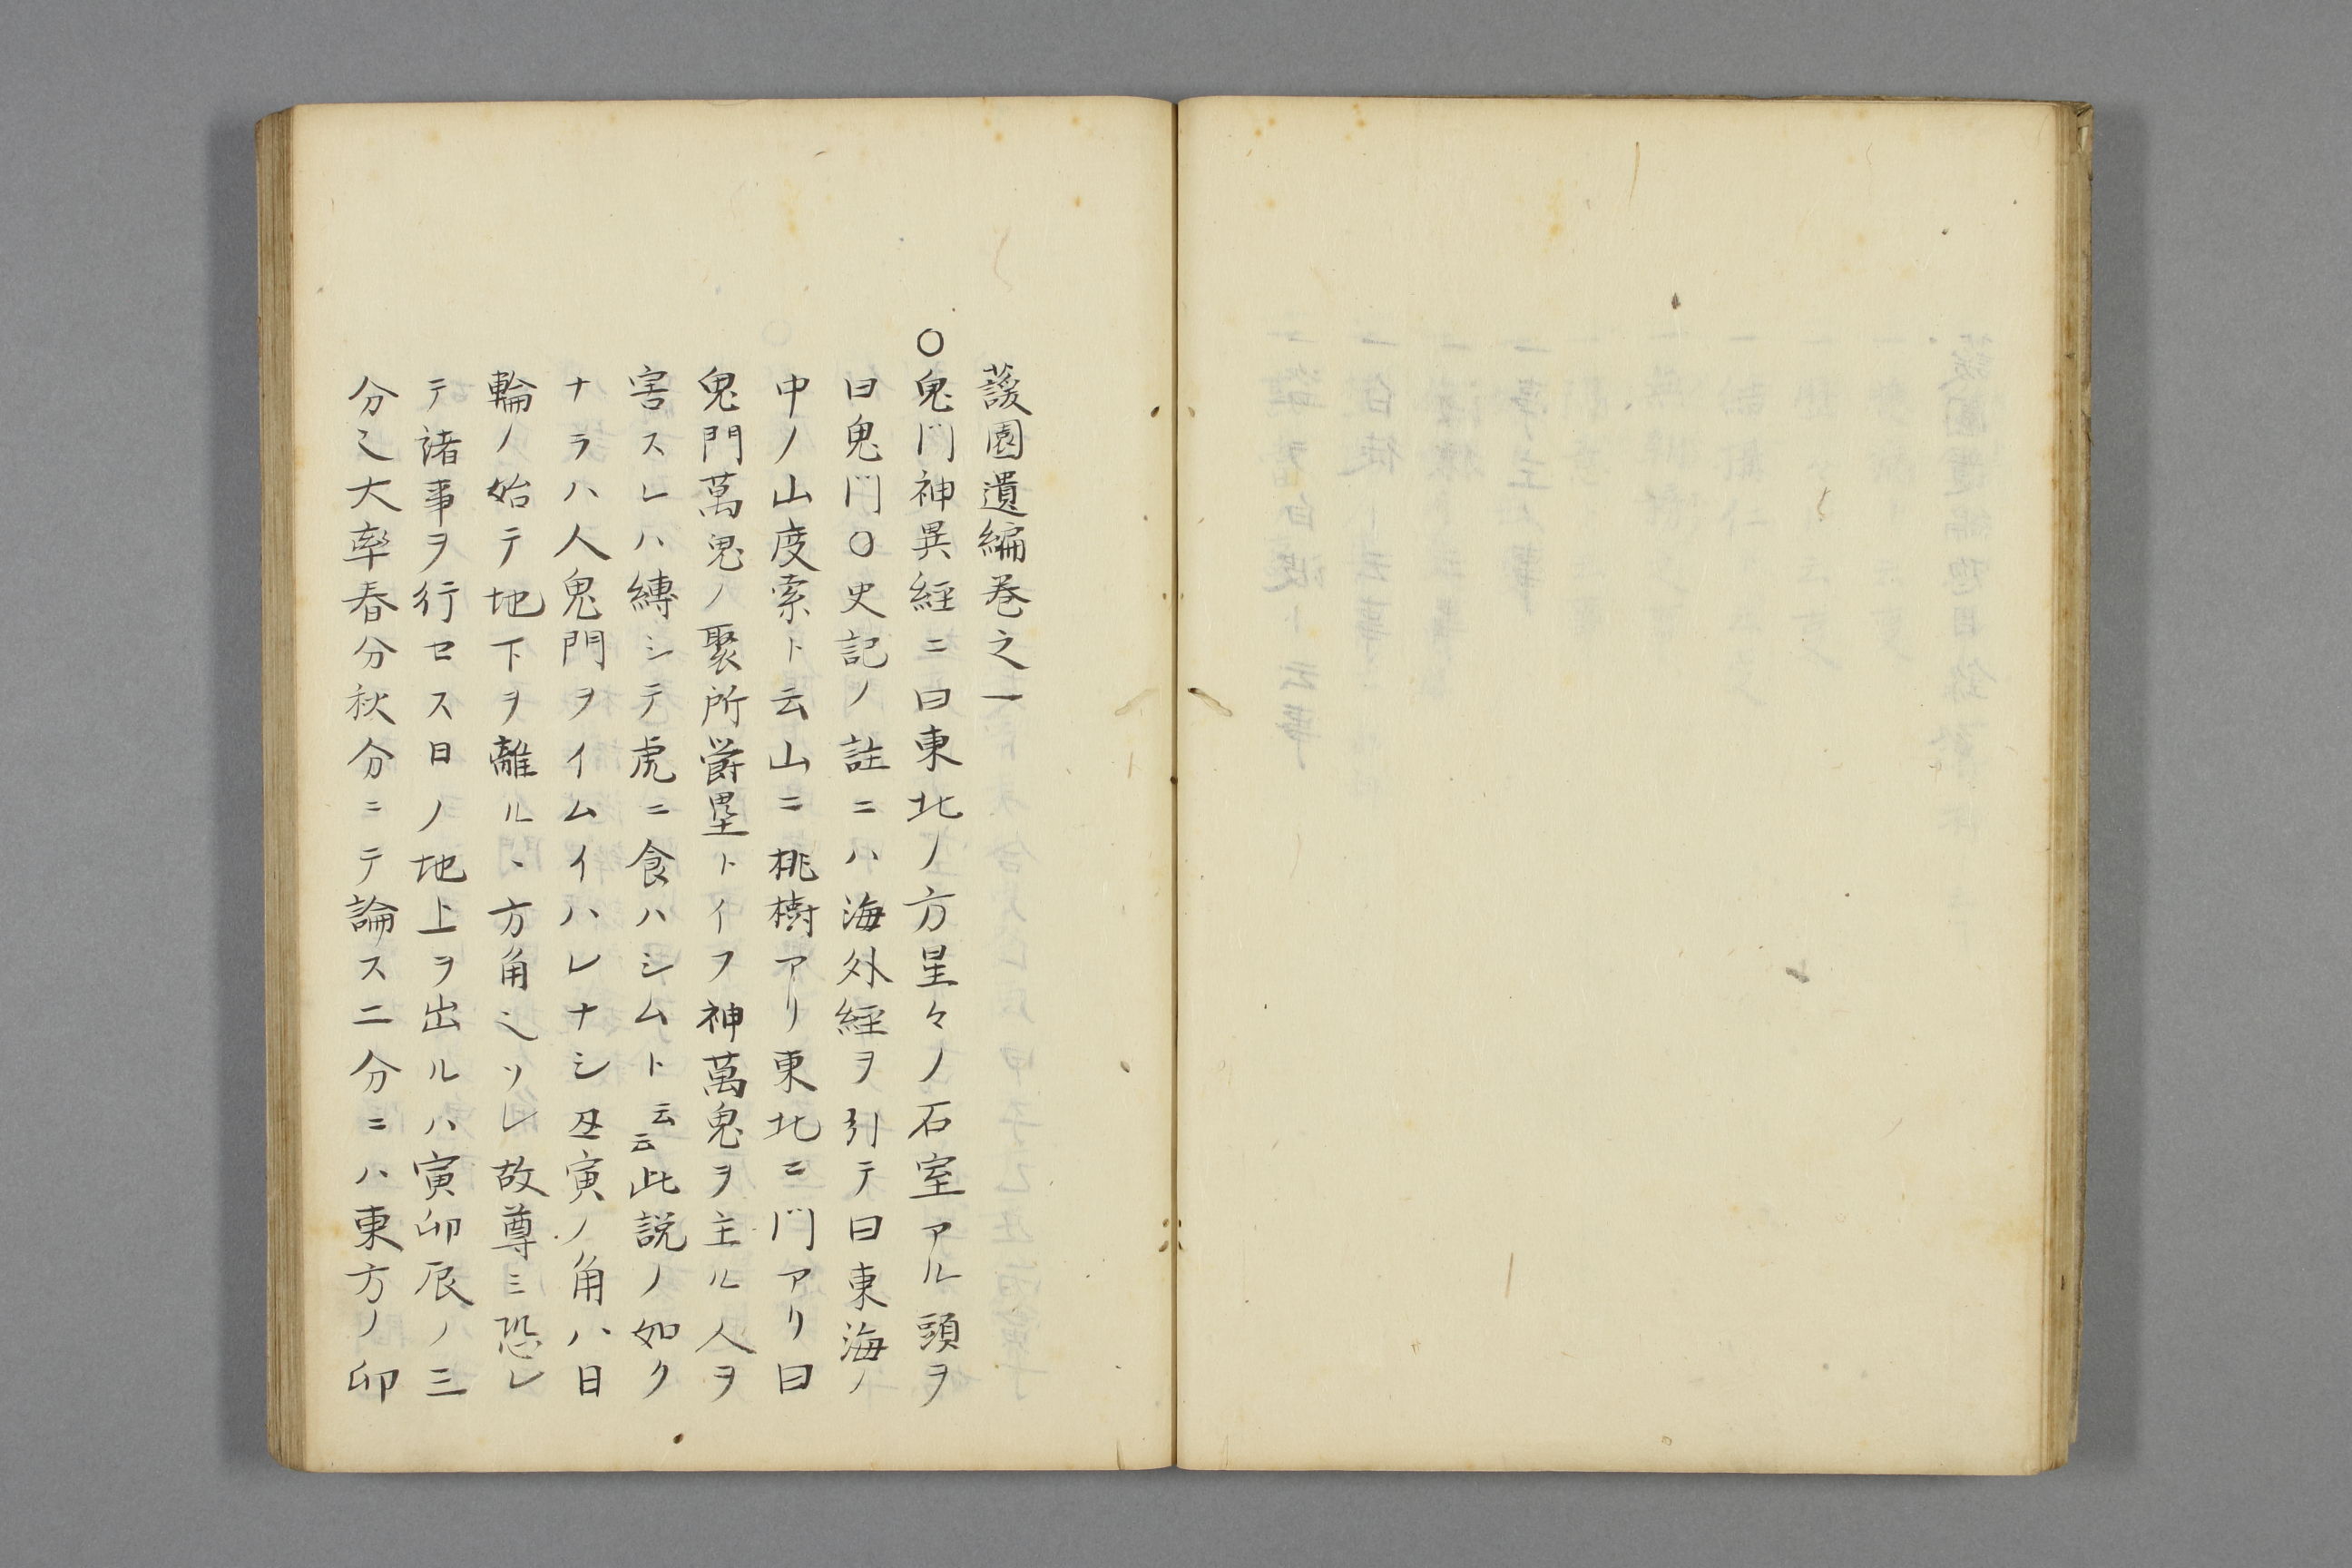 蘐園遺編巻之一
○鬼門神異経ニ曰東北ノ方星々ノ石室アル頭ヲ
曰鬼門○史記ノ註ニハ海外経ヲ引テ曰東海ノ
中ノ山度索ト云山ニ桃樹アリ東北ニ門アリ曰
鬼門萬鬼ノ聚所欝壘トイフ神萬鬼ヲ主ル人ヲ
害スレハ縛シテ虎ニ食ハシムト云云此説ノ如ク
ナラハ人鬼門ヲイムイハレナシ丑寅ノ角ハ日
輪ノ始テ地下ヲ離ルヽ方角也ソレ故尊ミ恐レ
テ諸事ヲ行セス日ノ地上ヲ出ルハ寅卯辰ノ三
分也大率春分秋分ニテ論ス二分ニハ東方ノ卯